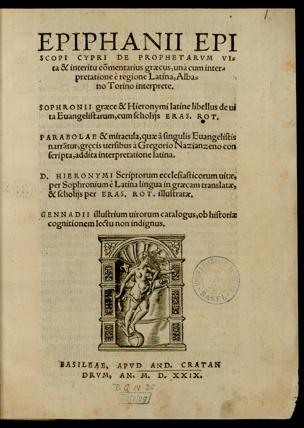 1.
EPIPHANII EPI
SCOPI CYPRI DE PROPHETARVM VI-
ta & interitu cõmentarius græcus, unà cum inter-
pretatione è regione Latina, Alba-
no Torino interprete.
SOPHRONII græce & Hieronymi latine libellus de ui
ta Euangelistarum, cum scholijs ERAS. ROT.
PARABOLAE & miracula, quæ à singulis Euangelistis
narrãtur, gręcis uersibus à Gregorio Nazianzeno con
scripta, addita interpretatione latina.
D. HIERONYMI Scriptorum ecclesiasticorum uitæ,
per Sophronium è Latina lingua in græcam translatæ,
& scholijs per ERAS. ROT. illustratæ.
GENNADII illustrium uirorum catalogus, ob historiæ
cognitionem lectu non indignus.
BASILEAE, APVD AND. CRATAN
DRVM, AN. M. D. XXIX.